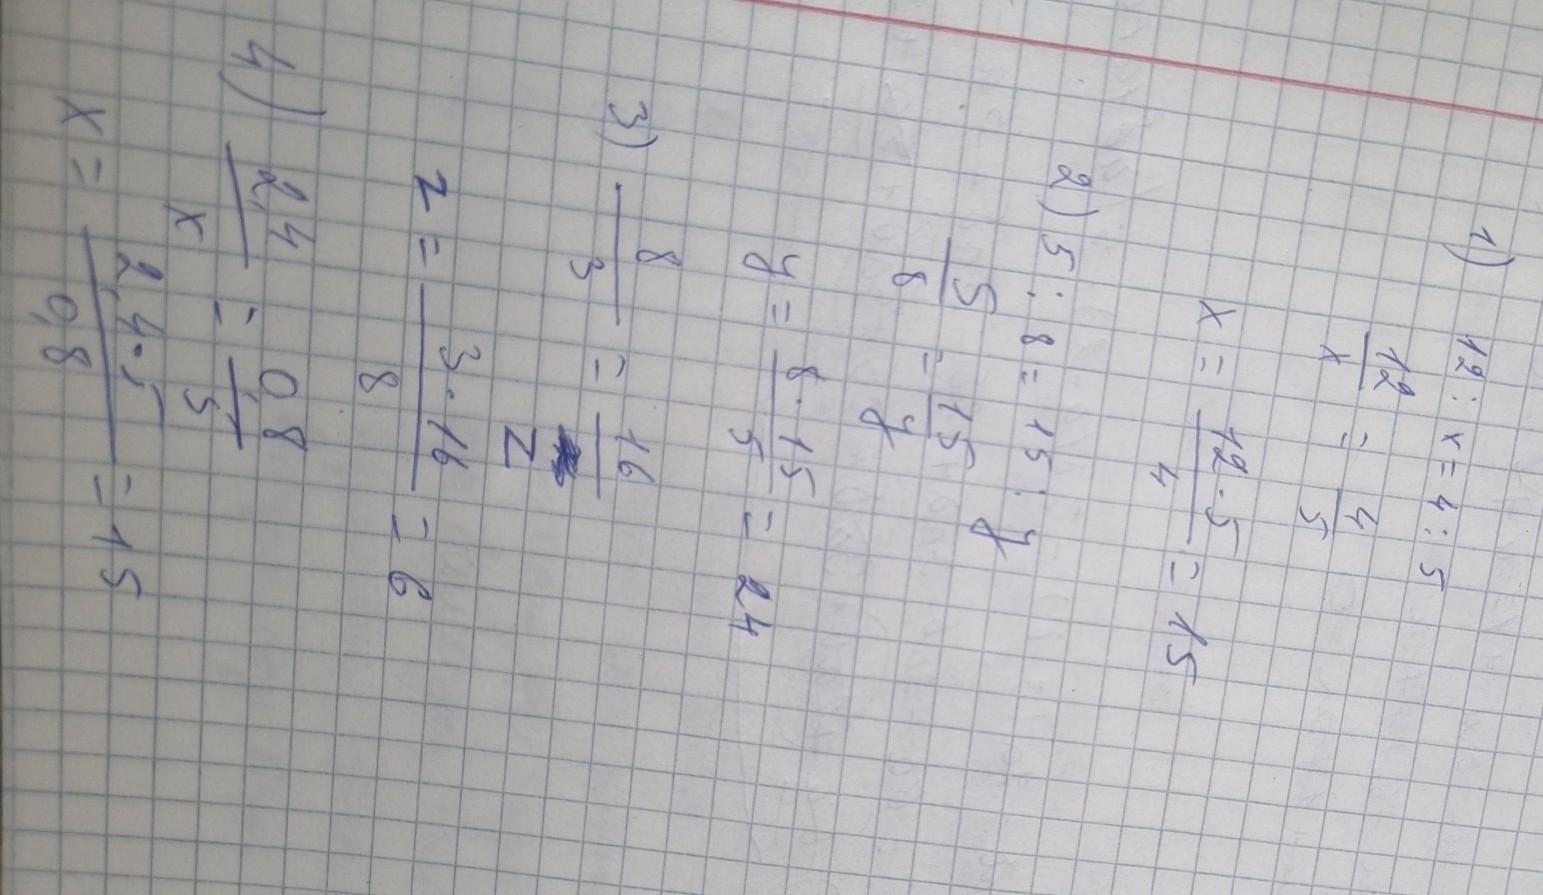 1) 12 : x = 4 : 5
12/x = 4/5
x = 12·5/4 = 15
2) 5 : 8 = 15 : y
5/8 = 15/y
y = 8·15/5 = 24
3) 8/3 = 16/z
z = 3·16/8 = 6
4) 2,4/x = 0,8/5
x = 2,4·5/0,8 = 15